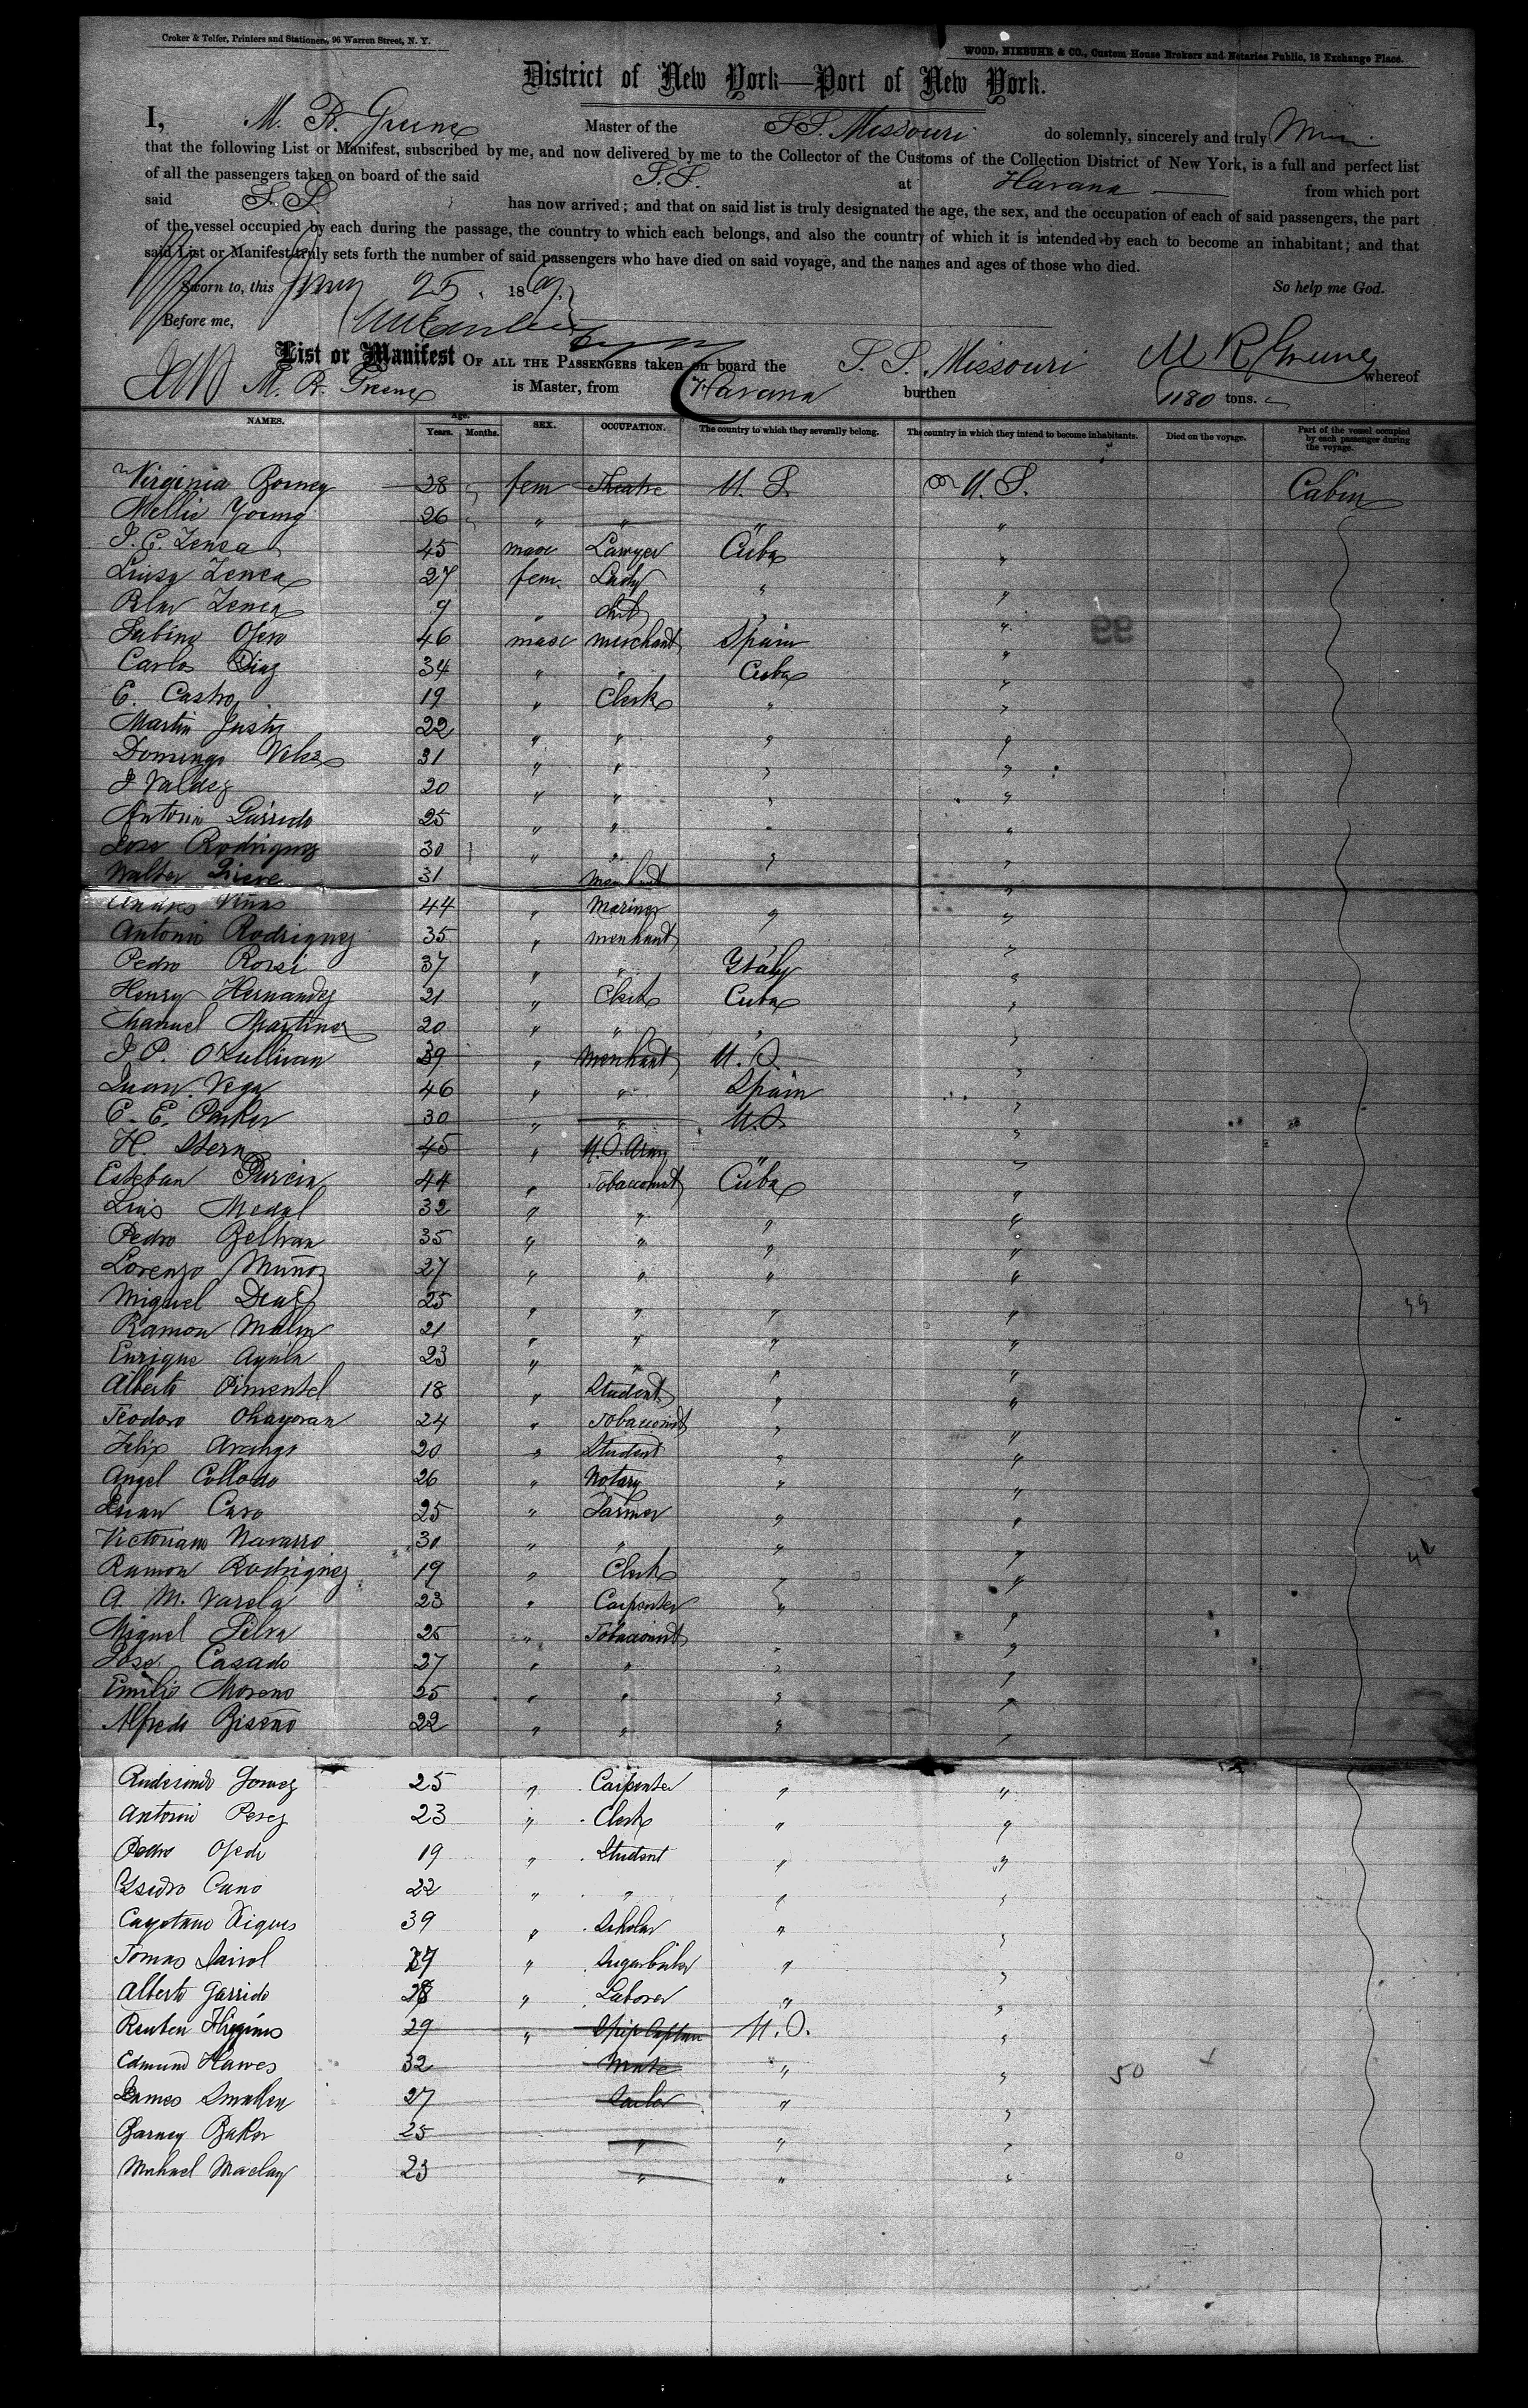 Croker & Telfer, Printers and Stationers, 96 Warren Street, N. Y.
WOOD, NIEBUHR & CO., Custom House Brokers and Notaries Public, 18 Exchange Place.
District of New York—Port of New York.
I, M. R. Greene Master of the S.S. Missouri do solemnly, sincerely and truly
that the following List or Manifest, subscribed by me, and now delivered by me to the Collector of the Customs of the Collection District of New York, is a full and perfect list
of all the passengers taken on board of the said S.S. at Havana from which port
said S.S. has now arrived; and that on said list is truly designated the age, the sex, and the occupation of each of said passengers, the part
of the vessel occupied by each during the passage, the country to which each belongs, and also the country of which it is intended by each to become an inhabitant; and that
said List or Manifest truly sets forth the number of said passengers who have died on said voyage, and the names and ages of those who died.
Sworn to, this Jany 25, 1869. So help me God.
Before me,
List or Manifest OF ALL THE PASSENGERS taken on board the S. S. Missouri M R Greene whereof
M. R. Greene is Master, from Havana burthen 1180 tons.
NAMES. Age. Years. Months. SEX. OCCUPATION. The country to which they severally belong. The country in which they intend to become inhabitants. Died on the voyage. Part of the vessel occupied by each passenger during the voyage.
Virginia 28 fem Theatre U. S. U. S. Cabin
Nellie Young 26 " " " "
J. C. Zenea 45 masc Lawyer Cuba "
Luisa Zenea 27 fem. Lady " "
Zenea 9 " " "
Sabino Ojero 46 masc merchant Spain "
Carlos Diaz 34 " " Cuba "
E. Castro 19 " Clerk " "
Martin Justiz 22 " " " "
Domingo Velez 31 " " " "
J Valdez 20 " " " "
Antonio Garrido 25 " " " "
Jose Rodriguez 30 " " " "
Walter 31 Merchant "
Andres Viñas 44 " Mariner " "
Antonio Rodriguez 35 " merchant "
Pedro Rossi 37 " " Italy "
Henry Hernandez 21 " Clerk Cuba "
Manuel Martinez 20 " " " "
J P. O'Sullivan 39 " Merchant U. S. "
Juan Vega 46 " " Spain "
C. E. Parker 30 " " U.S. "
H. Stern 45 " U.S. Army " "
Esteban Garcia 44 " Tobacconist Cuba "
Luis Medal 32 " " " "
Pedro Beltran 35 " " " "
Lorenzo Muñoz 27 " " " "
Miguel Deaz 25 " " " "
Ramon 21 " " " "
Enrique Ayala 23 " " " "
Alberto Pimentel 18 " Student " "
Teodoro Ohagoran 24 " Tobacconist " "
Felix Arango 20 " Student " "
Angel Collado 26 " Notary " "
Juan Caso 25 " Farmer " "
Victoriano Navarro 30 " " " "
Ramon Rodriguez 19 " Clerk " "
A. M. Varela 23 " Carpenter " "
Miguel Silva 25 " Tobacconist "
Jose Casado 27 " " " "
Emilio Moreno 25 " " " "
Alfredo Biseño 22 " " " "
Rudesindo Gomez 25 " Carpenter " "
Antonio Perez 23 " Clerk " "
Pedro Ojeda 19 " Student " "
Ysidro Cano 22 " " " "
Cayetano 39 " Scholar " "
Tomas 37 " " "
Alberto Garrido 28 " Laborer " "
Reuben Higgins 29 " Ship Captain U. S. "
Edmund Hawes 32 Mate " " 50
James Smallen 27 Sailor " "
Barney Baker 25 " " "
Michael Maclay 23 " " "